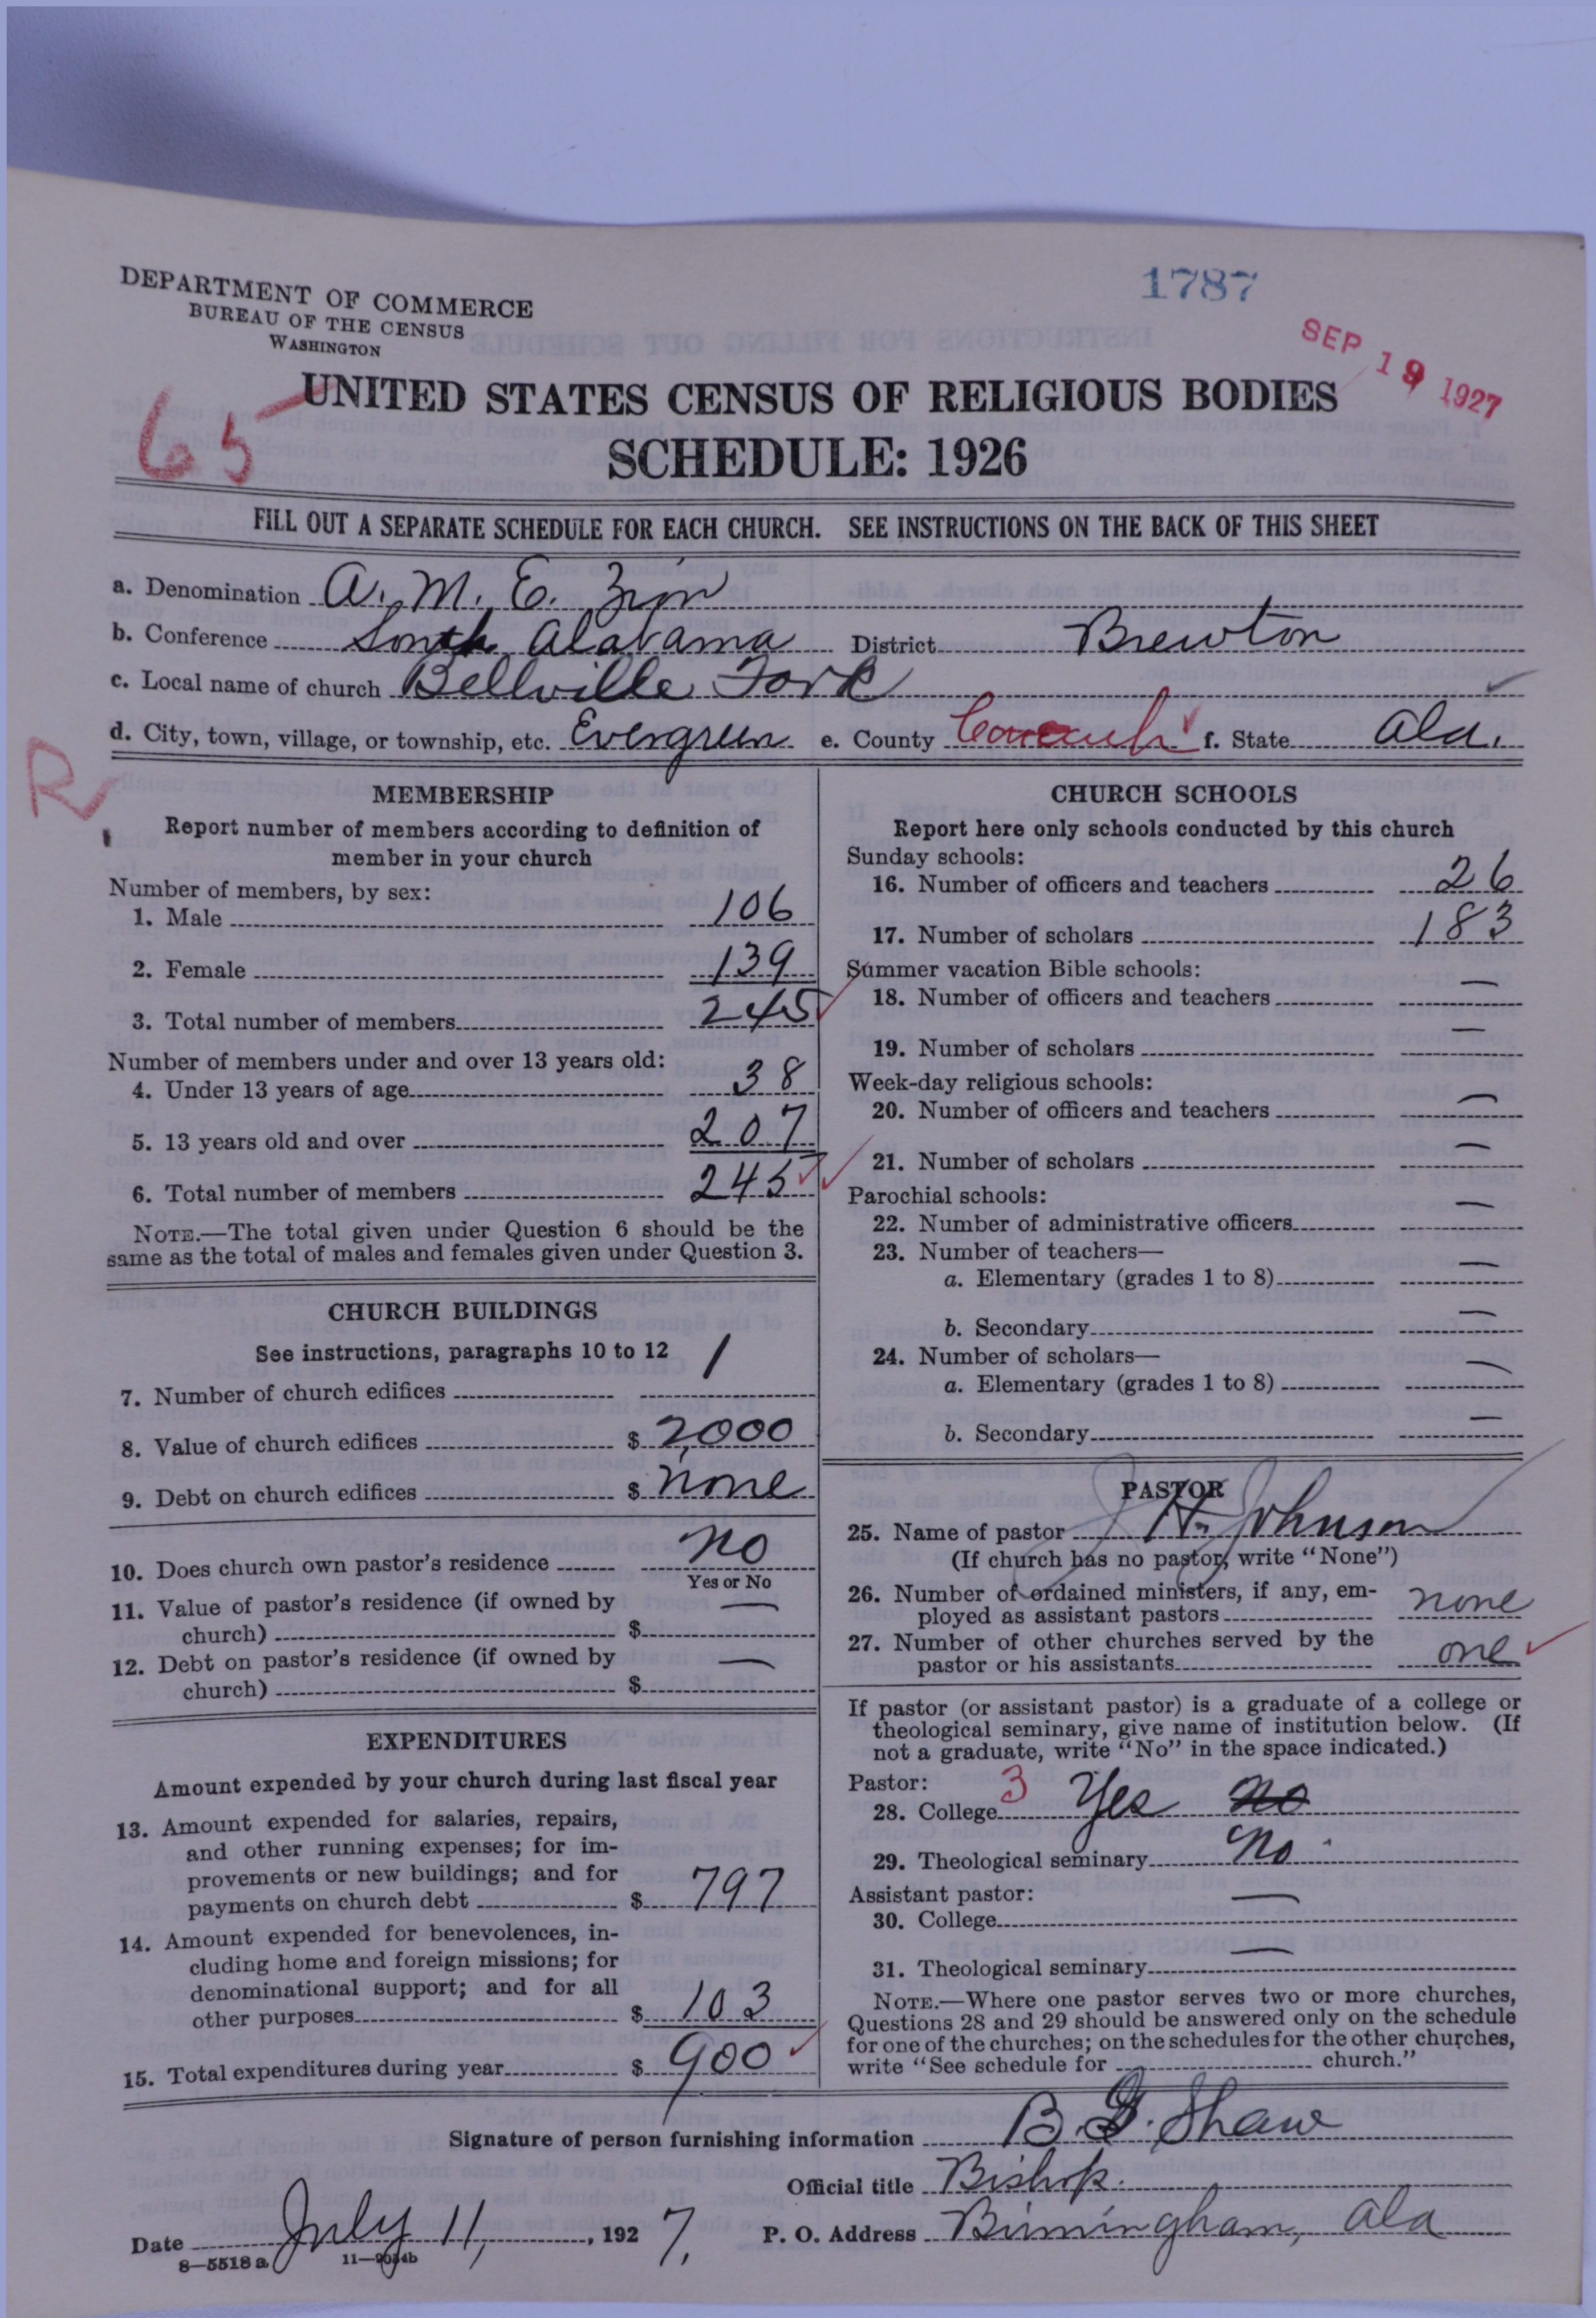 1787
SEP 19 1927
DEPARTMENT OF COMMERCE
BUREAU OF THE CENSUS
WASHINGTON
65
UNITED STATES CENSUS OF RELIGIOUS BODIES
SCHEDULE: 1926
FILL OUT A SEPARATE SCHEDULE FOR EACH CHURCH. SEE INSTRUCTIONS ON THE BACK OF THIS SHEET
a. Denomination A. M. E. Zion
b. Conference South Alabama District Brewton
c. Local name of church Bellville Fork
d. City, town, village, or township, etc. Evergreen e. County Conecuh f. State Ala.
R
MEMBERSHIP
Report number of members according to definition of
member in your church
Number of members, by sex:
1. Male 106
2. Female 139
3. Total number of members 245
Number of members under and over 13 years old:
4. Under 13 years of age 38
5. 13 years old and over 207
6. Total number of members 245
NOTE.—The total given under Question 6 should be the
same as the total of males and females given under Question 3.
CHURCH BUILDINGS
See instructions, paragraphs 10 to 12
7. Number of church edifices 1
8. Value of church edifices $ 2,000
9. Debt on church edifices $ none
10. Does church own pastor's residence no
Yes or No
11. Value of pastor's residence (if owned by
church) $ —
12. Debt on pastor's residence (if owned by
church) $ —
EXPENDITURES
Amount expended by your church during last fiscal year
13. Amount expended for salaries, repairs,
and other running expenses; for im-
provements or new buildings; and for
payments on church debt $ 797
14. Amount expended for benevolences, in-
cluding home and foreign missions; for
denominational support; and for all
other purposes $ 103
15. Total expenditures during year $ 900
CHURCH SCHOOLS
Report here only schools conducted by this church
Sunday schools:
16. Number of officers and teachers 26
17. Number of scholars 183
Summer vacation Bible schools:
18. Number of officers and teachers —
19. Number of scholars —
Week-day religious schools:
20. Number of officers and teachers —
21. Number of scholars —
Parochial schools:
22. Number of administrative officers —
23. Number of teachers—
a. Elementary (grades 1 to 8) —
b. Secondary —
24. Number of scholars—
a. Elementary (grades 1 to 8) —
b. Secondary —
PASTOR
25. Name of pastor J H Johnson
(If church has no pastor, write "None")
26. Number of ordained ministers, if any, em-
ployed as assistant pastors none
27. Number of other churches served by the
pastor or his assistants one
If pastor (or assistant pastor) is a graduate of a college or
theological seminary, give name of institution below. (If
not a graduate, write "No" in the space indicated.)
Pastor:
28. College 3 Yes no
29. Theological seminary No
Assistant pastor:
30. College —
31. Theological seminary —
NOTE.—Where one pastor serves two or more churches,
Questions 28 and 29 should be answered only on the schedule
for one of the churches; on the schedules for the other churches,
write "See schedule for church."
Signature of person furnishing information B. G. Shaw
Official title Bishop.
Date July 11, 1927. P. O. Address Birmingham, Ala
8—5518 a 11—9054b